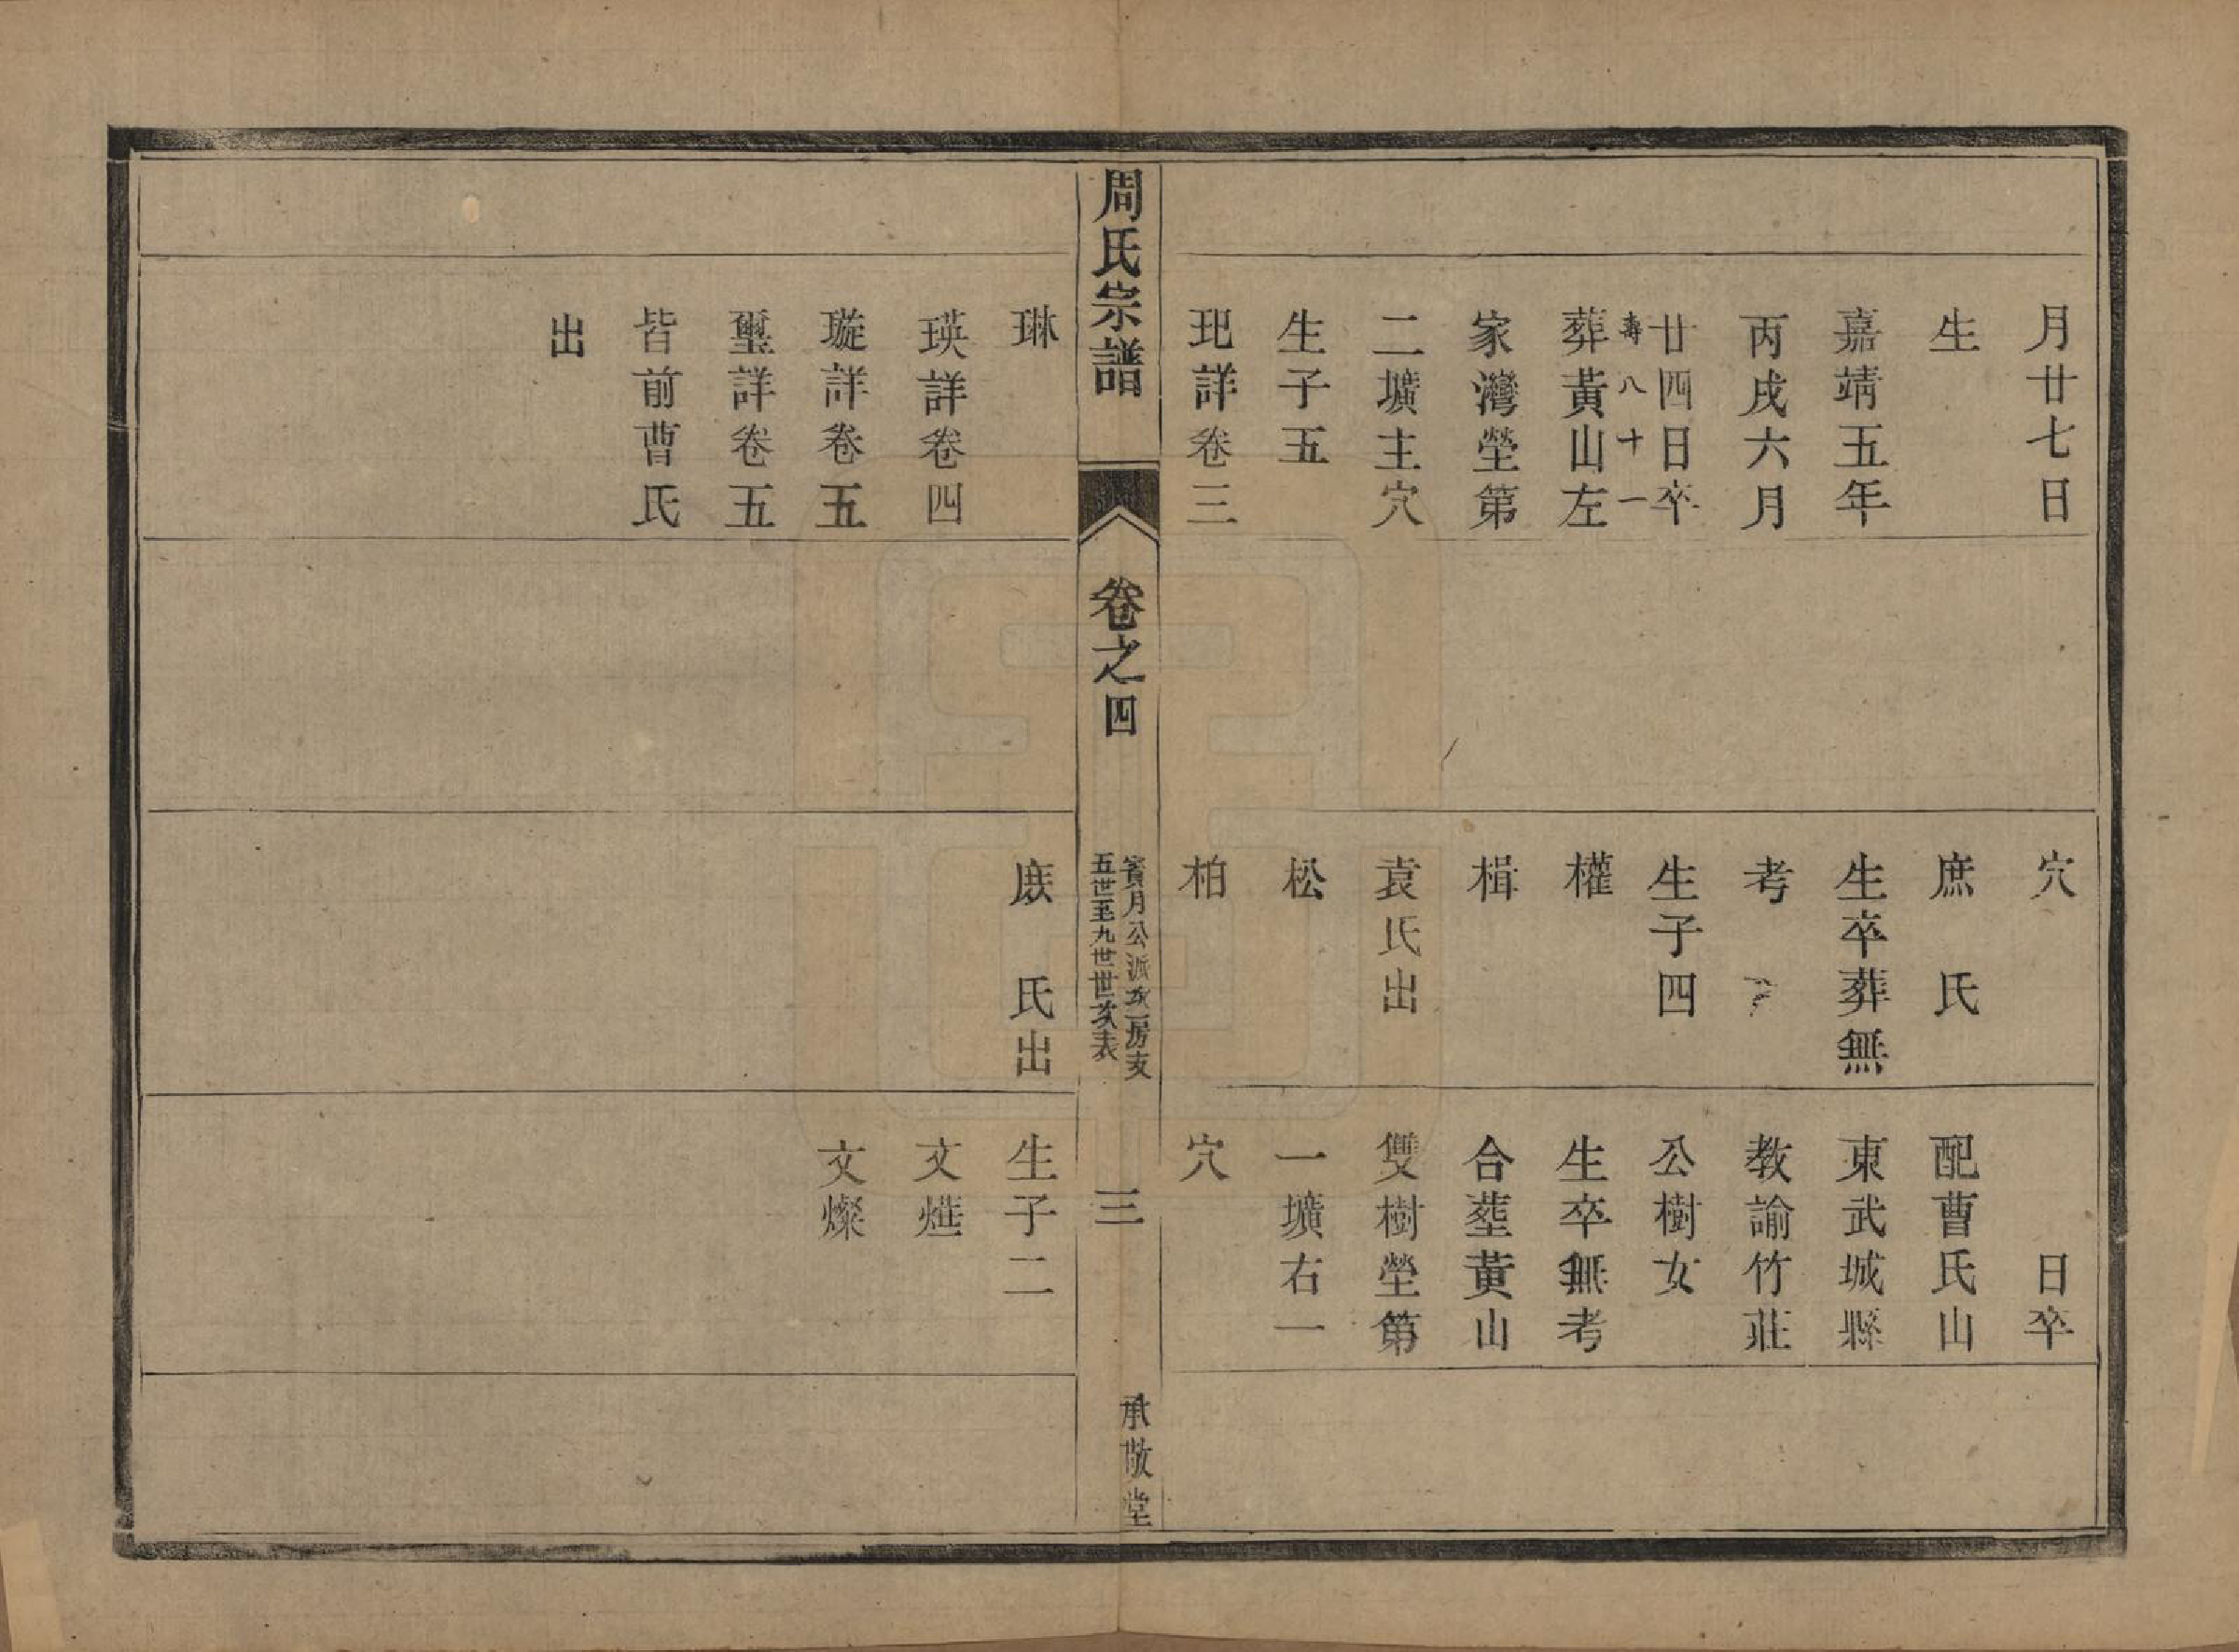 月廿七日
生
嘉靖五年
丙戌六月
廿四日卒
壽八十一
葬黃山左
家灣塋第
二壙主穴
生子五
玘詳卷三
穴
庶　氏
生卒葬無
考
生子四
權
楫
袁氏出
松
柏
日卒
配曹氏山
東武城縣
教諭竹莊
公樹女
生卒無考
合塟黃山
雙樹塋第
一壙右一
穴
周氏宗譜
卷之四
賓月公派次二房支
五世至九世世次表
三
承敬堂
琳
瑛詳卷四
璇詳卷五
璽詳卷五
皆前曹氏
出
庶　氏出
生子二
文燁
文燦